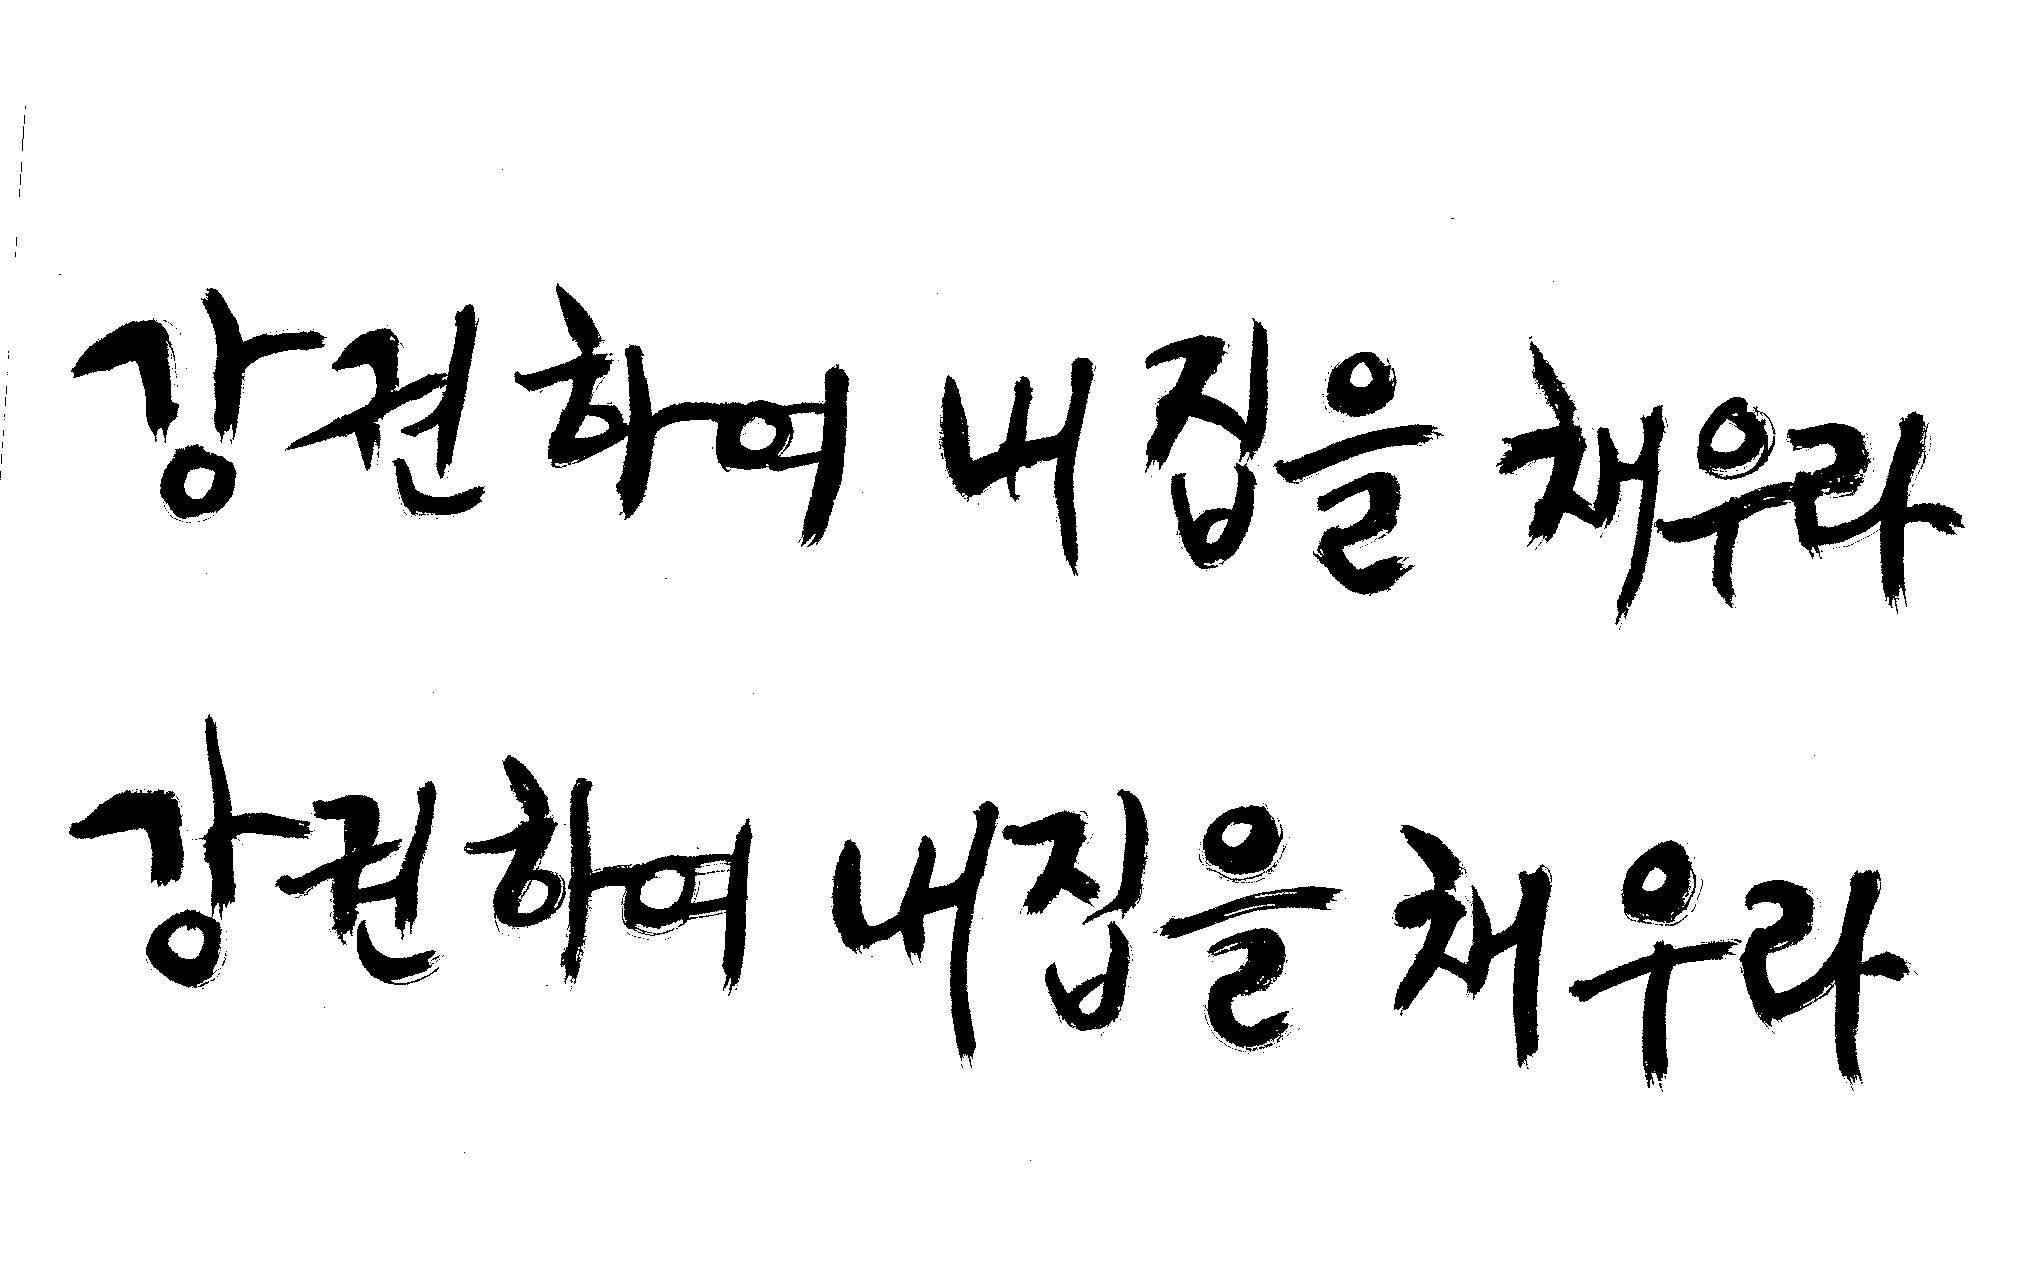 강권하여 내 집을 채우라
강권하여 내집을 채우라